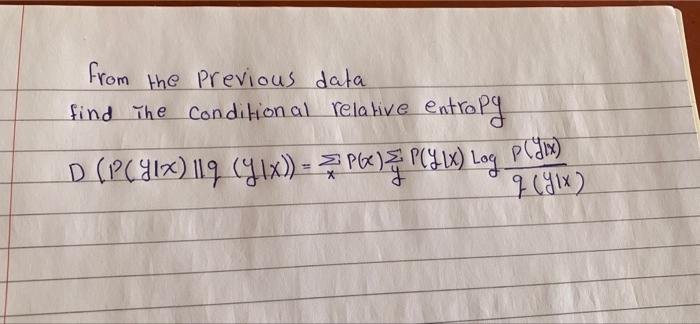 from the previous data
find The conditional relative entropy
D (P(y|x) ||q (y|x)) = Σ_x P(x) Σ_y P(y|x) Log P(y|x) / q(y|x)